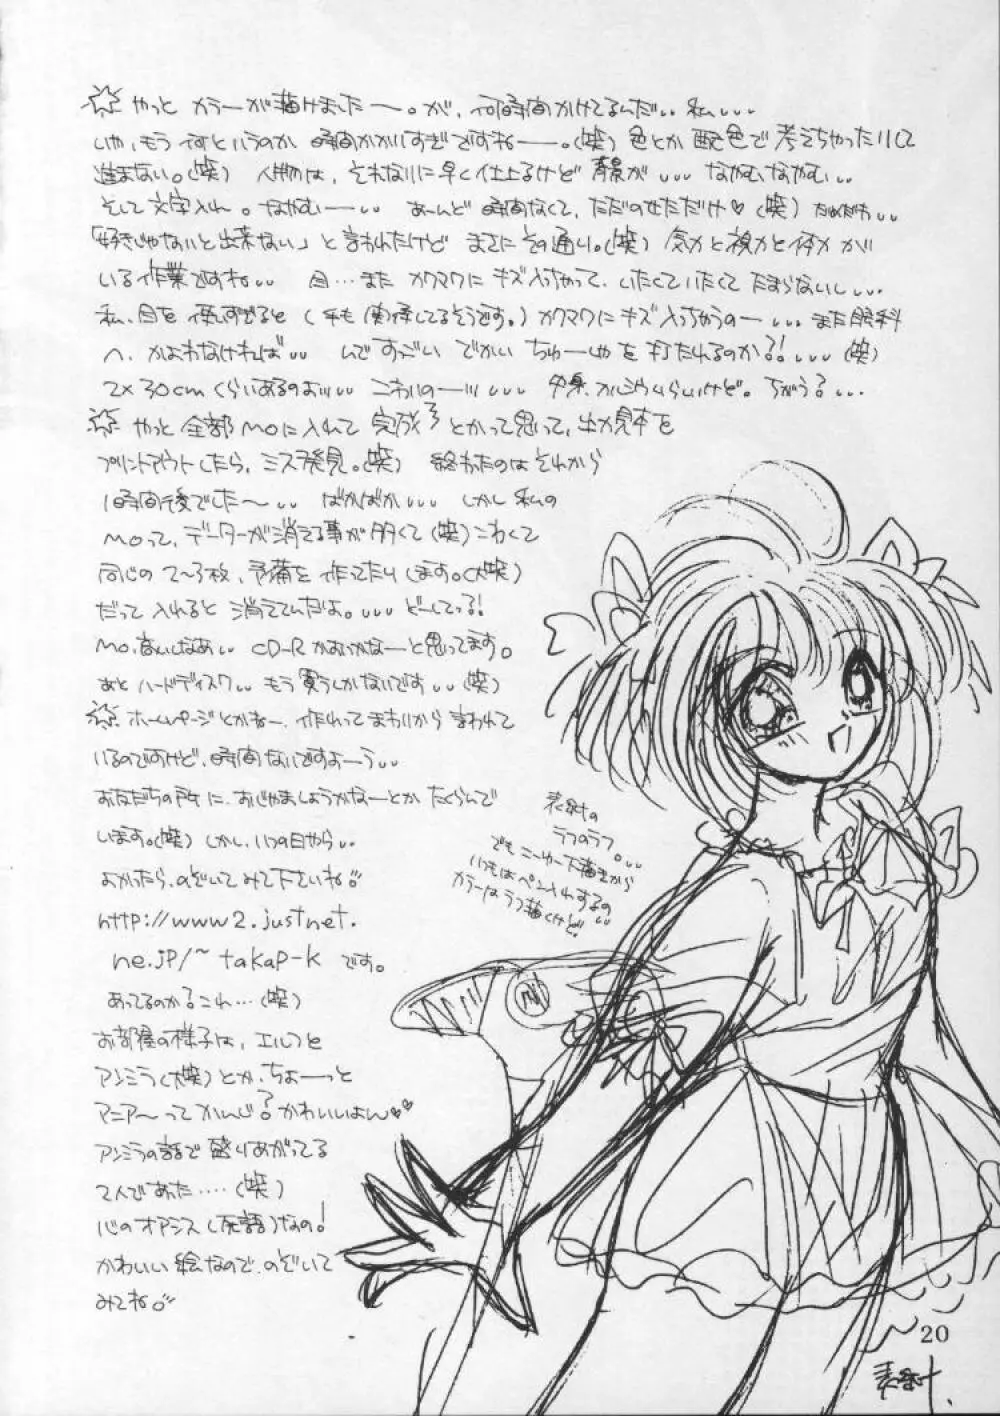 ☆やっと カラーが描けました〜。が、何時間かけてるんだ‥私‥‥
いや、もう何というのか 時間かかりすぎですねー。(笑) 色とか配色で考えちゃったりして
進まない。(笑) 人物は、それなりに早く仕上るけど 背景が‥‥ なやむなやむ‥
そして文字入れ。なやむー‥ あーんど時間なくて、ただのせただけ♡(笑) だめだわ‥
「好きじゃないと出来ない」と言われたけど まさにその通り。(笑) 気力と視力と体力が
いる作業ですね‥ 目…また カクマクにキズ入っちゃって、いたくていたくて たまらないし‥‥
私、目を使いすぎると (手も関係してるそうです。) カクマクにキズ入っちゃうのー‥‥また眼科
へ、かよわなければ‥ んですっごい でかい ちゅーしゃを打たれるのか?!‥‥(笑)
2×30cmくらいあるのよ‥‥ こわいの〜‥‥ 中身、カルシウムらしいけど。ちがう?‥‥
☆やっと全部MOに入れて 完成 とかって思って、出力見本を
プリントアウトしたら、ミス発見。(笑) 終わったのはそれから
1時間後でした〜‥ ばかばか‥‥ しかし私の
MOって、データーが消える事が多くて(笑)こわくて
同じの2〜3枚、予備を作ってたりします。(大笑)
だって入れると 消えてんだよ。‥‥どーしてっ?!
MO、高いしなあ‥ CD-Rかおうかなーと思ってます。
あと ハードディスク‥もう買うしかないです‥(笑)
☆ホームページとかねー、作れってまわりから言われて
いるのですけど、時間ないですよーう‥
お友だちの所に、おじゃましようかなーとか たくらんで
います。(笑) しかし、いつの日やら‥
よかったら、のぞいてみて下さいね。
http://www2.justnet.
ne.jp/~takap-k です。
あってるのか?これ…(笑)
お部屋の様子は、エルフと
アンミラ(大笑)とか、ちょーっと
マニア〜ってかんじ?かわいいよん♡♡
アンミラの話で盛りあがってる
2人であった‥‥(笑)
心のオアシス(死語)なの!
かわいい絵なので、のぞいて
みてね。
表紙の
ラフのラフ。‥
でもこーゆー下描きから
いつもはペン入れするの
カラーはラフ描くけど。
20
表紙